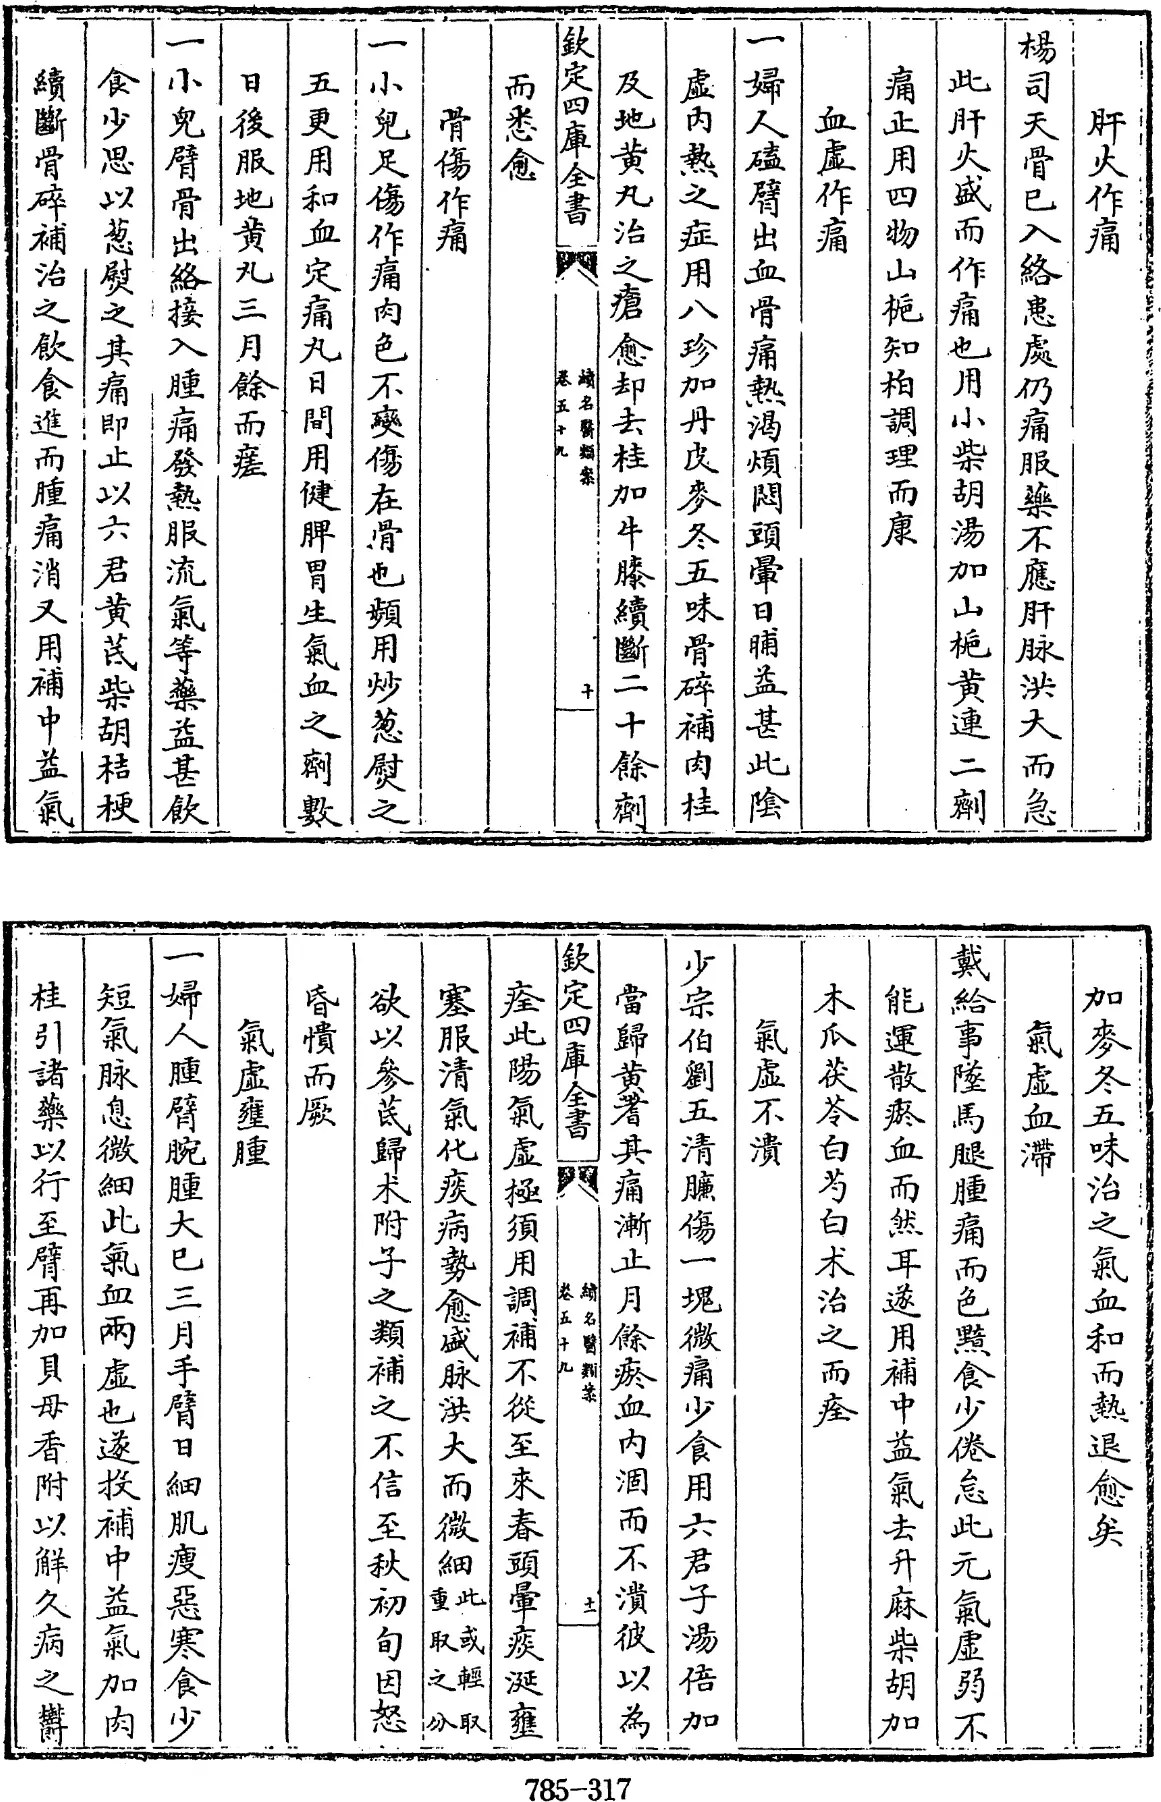 肝火作痛
楊司天骨已入絡患處仍痛服藥不應肝脉洪大而急
此肝火盛而作痛也用小柴胡湯加山梔黄連二劑
痛止用四物山梔知柏調理而康
血虛作痛
一婦人磕臂出血骨痛熱渴煩悶頭暈日晡益甚此陰
虛内熱之症用八珍加丹皮麥冬五味骨碎補肉桂
及地黄丸治之瘡愈却去桂加牛膝續斷二十餘劑
欽定四庫全書
續名醫類案
卷五十九
十
而悉愈
骨傷作痛
一小兒足傷作痛肉色不變傷在骨也頻用炒葱熨之
五更用和血定痛丸日間用健脾胃生氣血之劑數
日後服地黄丸三月餘而瘥
一小兒臂骨出絡接入腫痛發熱服流氣等藥益甚飲
食少思以葱熨之其痛即止以六君黄芪柴胡桔梗
續斷骨碎補治之飲食進而腫痛消又用補中益氣
加麥冬五味治之氣血和而熱退愈矣
氣虛血滯
戴給事墜馬腿腫痛而色黯食少倦怠此元氣虛弱不
能運散瘀血而然耳遂用補中益氣去升麻柴胡加
木瓜茯苓白芍白术治之而痊
氣虛不潰
少宗伯劉五清臁傷一塊微痛少食用六君子湯倍加
當歸黄蓍其痛漸止月餘瘀血内涸而不潰彼以為
欽定四庫全書
續名醫類案
卷五十九
十一
痊此陽氣虛極須用調補不從至來春頭暈痰涎壅
塞服清氣化痰病勢愈盛脉洪大而微細此或輕取重取之分
欲以參芪歸术附子之類補之不信至秋初旬因怒
昏憒而厥
氣虛壅腫
一婦人腫臂腕腫大已三月手臂日細肌瘦惡寒食少
短氣脉息微細此氣血兩虛也遂投補中益氣加肉
桂引諸藥以行至臂再加貝母香附以解久病之鬱
785-317